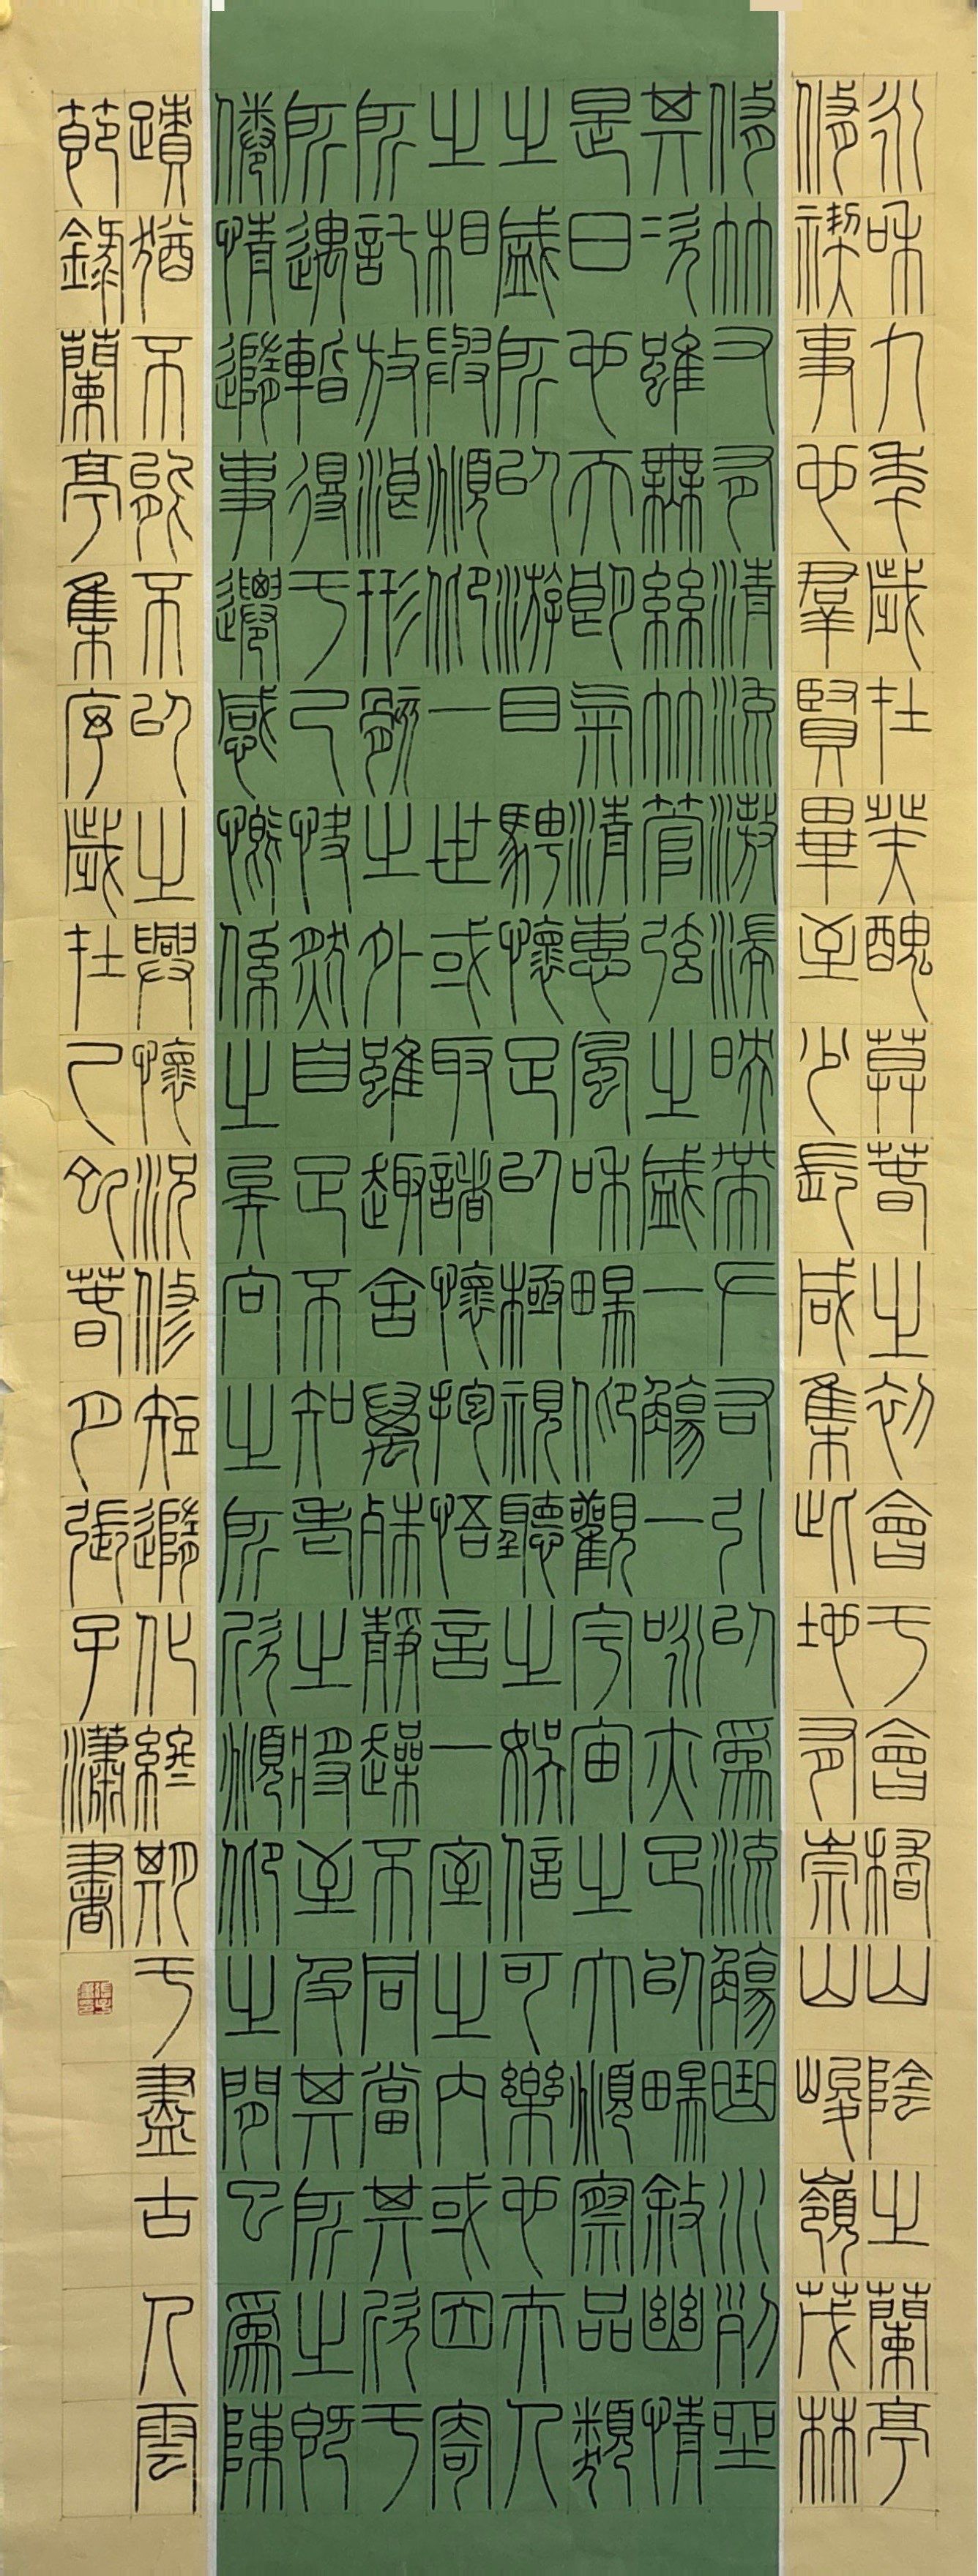 永和九年歲在癸醜莫春之初會于會稽山陰之蘭亭
修禊事也羣賢畢至少長咸集此地有崇山峻嶺茂林
脩竹又有清流激湍映帶左右引以爲流觴曲水列坐
其次雖無絲竹管弦之盛一觴一詠亦足以暢敘幽情
是日也天朗氣清惠風和暢仰觀宇宙之大俯察品類
之盛所以游目騁懷足以極視聽之娛信可樂也夫人
之相與俯仰一世或取諸懷抱悟言一室之內或因寄
所託放浪形骸之外雖趣舍萬殊靜躁不同當其欣于
所遇暫得于己快然自足不知老之將至及其所之既
倦情隨事遷感慨係之矣向之所欣俯仰之閒已爲陳
蹟猶不能不以之興懷況修短隨化終期于盡古人雲
節錄蘭亭集序歲在乙巳春月張子瀟書